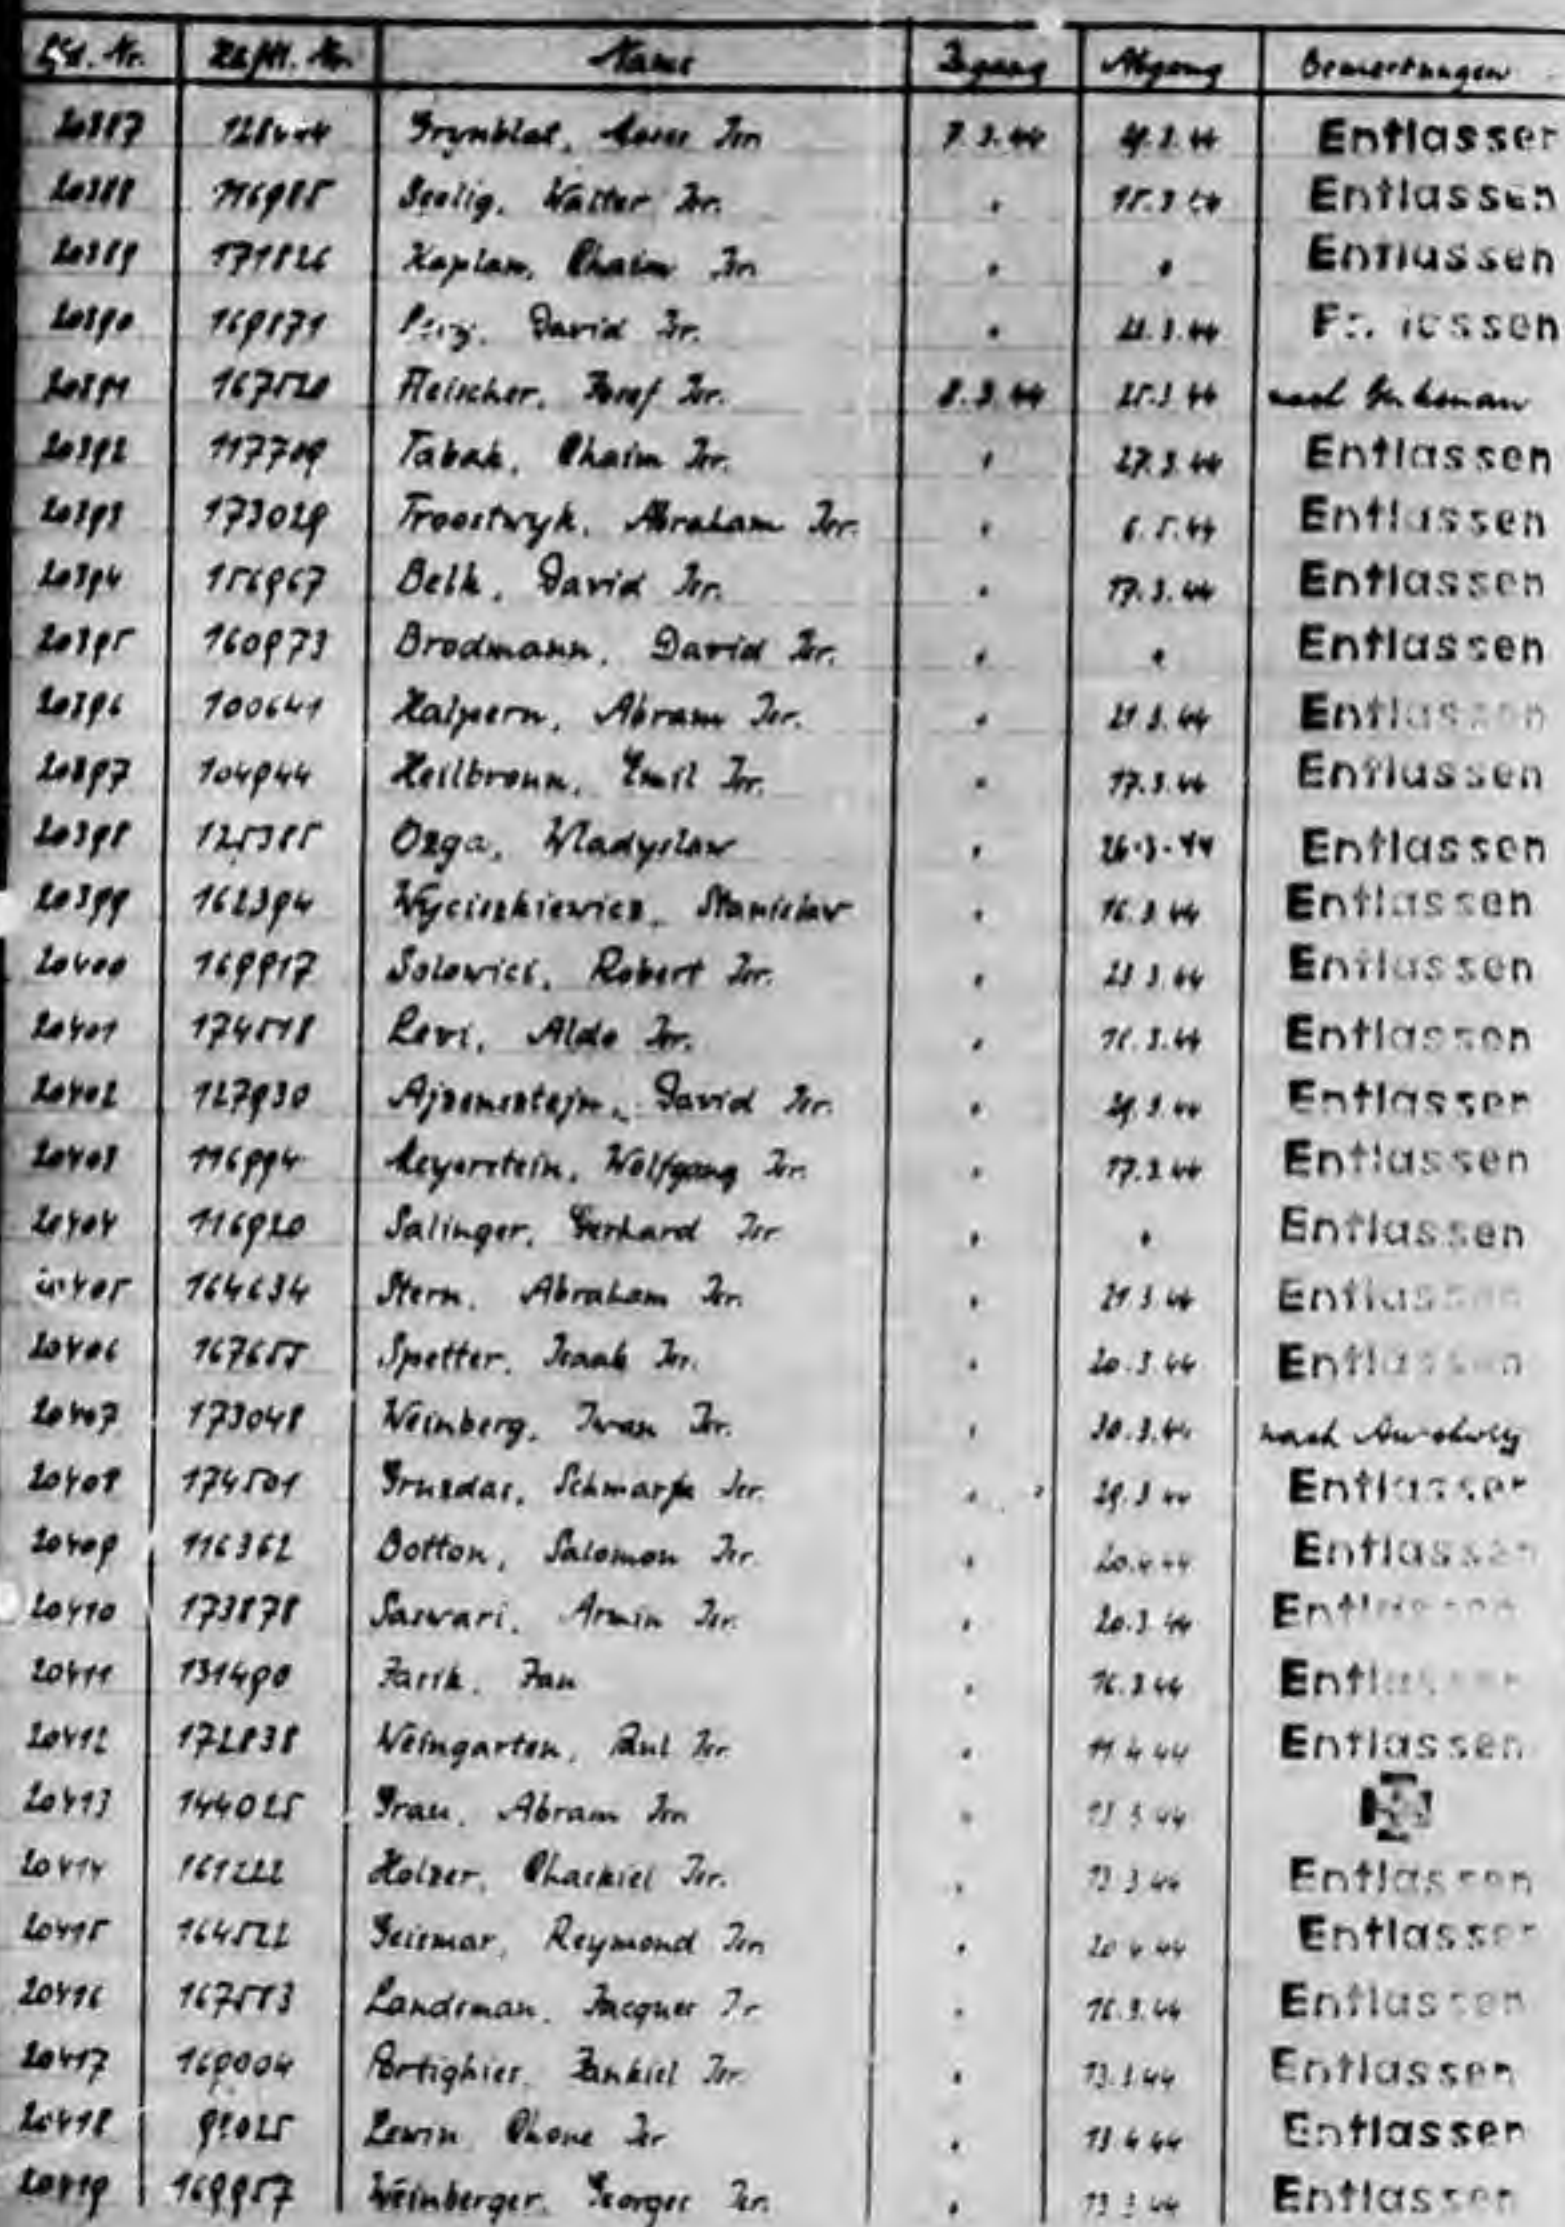 Lfd. Nr. Häftl. Nr. Name Zugang Abgang Bemerkungen
20387 128444 Grynblat, Moses Isr. 7.3.44 29.3.44 Entlassen
20388 116985 Seelig, Walter Isr. " 15.3.44 Entlassen
20389 171826 Kaplan, Chaim Isr. " " Entlassen
20390 169871 David Isr. " 21.3.44
20391 167520 Fleischer, Josef Isr. 8.3.44 25.3.44 nach Birkenau
20392 117709 Tabak, Chaim Isr. " 27.3.44 Entlassen
20393 173029 Troostwyk, Abraham Isr. " 6.5.44 Entlassen
20394 156967 Belk, David Isr. " 17.3.44 Entlassen
20395 160973 Brodmann, David Isr. " " Entlassen
20396 100641 Halpern, Abram Isr. " 21.3.44 Entlassen
20397 104944 Heilbronn, Emil Isr. " 17.3.44 Entlassen
20398 125385 Ozga, Wladyslaw " 26.3.44 Entlassen
20399 162394 Wyciszkiewicz, Stanislaw " 16.3.44 Entlassen
20400 169917 Solowici, Robert Isr. " 23.3.44 Entlassen
20401 174518 Levi, Aldo Isr. " Entlassen
20402 127930 Ajzensztejn, David Isr. " 29.3.44 Entlassen
20403 116994 Meyerstein, Wolfgang Isr. " 17.3.44 Entlassen
20404 116920 Salinger, Gerhard Isr. " " Entlassen
20405 164634 Stern, Abraham Isr. " 21.3.44 Entlassen
20406 167655 Spetter, Isaak Isr. " 20.3.44 Entlassen
20407 173048 Weinberg, Iwan Isr. " 30.3.44 nach Auschwitz
20408 174501 Gruzdas, Isr. " 29.3.44 Entlassen
20409 116362 Botton, Salomon Isr. " 20.4.44 Entlassen
20410 173878 Saswari, Armin Isr. " 20.3.44 Entlassen
20411 131490 Jarik, Jan " 16.3.44 Entlassen
20412 172838 Weingarten, Paul Isr. " 11.4.44 Entlassen
20413 144025 Grau, Abram Isr. " 13.3.44
20414 161222 Holzer, Chaskiel Isr. " 13.3.44 Entlassen
20415 164522 Geismar, Reymond Isr. " 20.4.44 Entlassen
20416 167513 Landsman, Jacques Isr. " 16.3.44 Entlassen
20417 169004 Portighies, Jankiel Isr. " 13.3.44 Entlassen
20418 Lewin, Chone Isr. " 13.4.44 Entlassen
20419 169957 Weinberger, Georges Isr. " 13.3.44 Entlassen